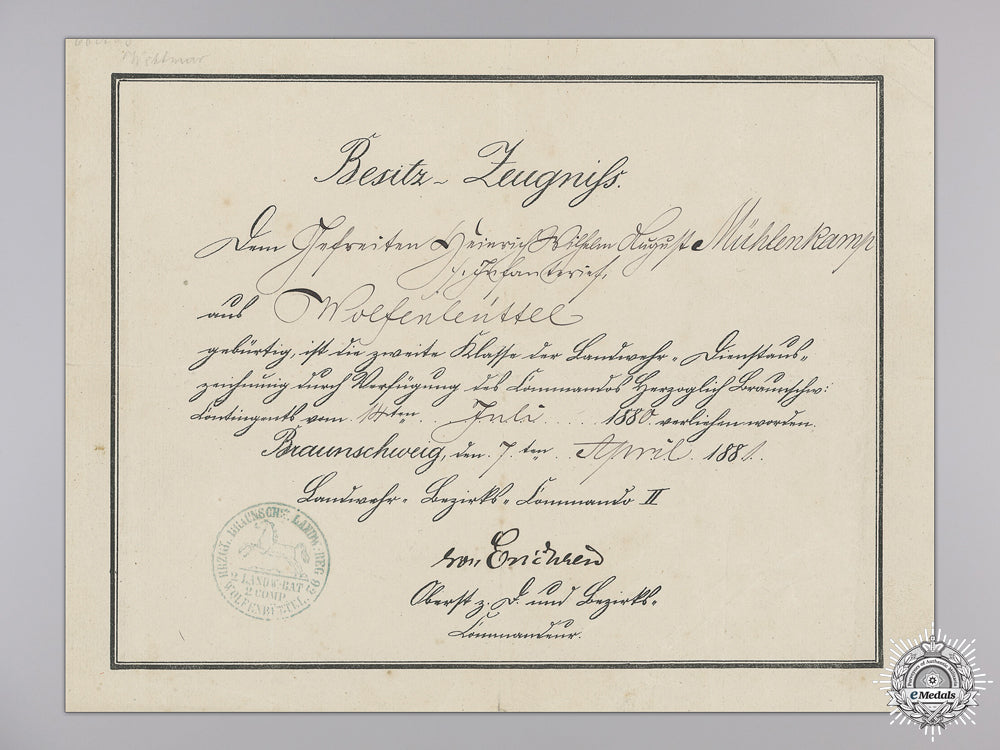 Wettmar
Besitz-Zeugniss.
Dem Gefreiten Heinrich Wilhelm August Mühlenkamp
(Infanterie)
aus Wolfenbüttel
gebürtig, ist die zweite Klasse der Landwehr-Dienstaus-
zeichnung durch Verfügung des Commandos Herzoglich Braunschw:
Contingents vom 14ten Juli 1880. verliehen worden.
Braunschweig, den 7.ten April 1881.
Landwehr-Bezirks-Commando II
von Erichsen
Oberst z. D. und Bezirks-
Commandeur.
HRZGL. BRAUNSCHW. LANDW. REG 92
2 LANDW. BAT
2 COMP.
WOLFENBÜTTEL
eMedals